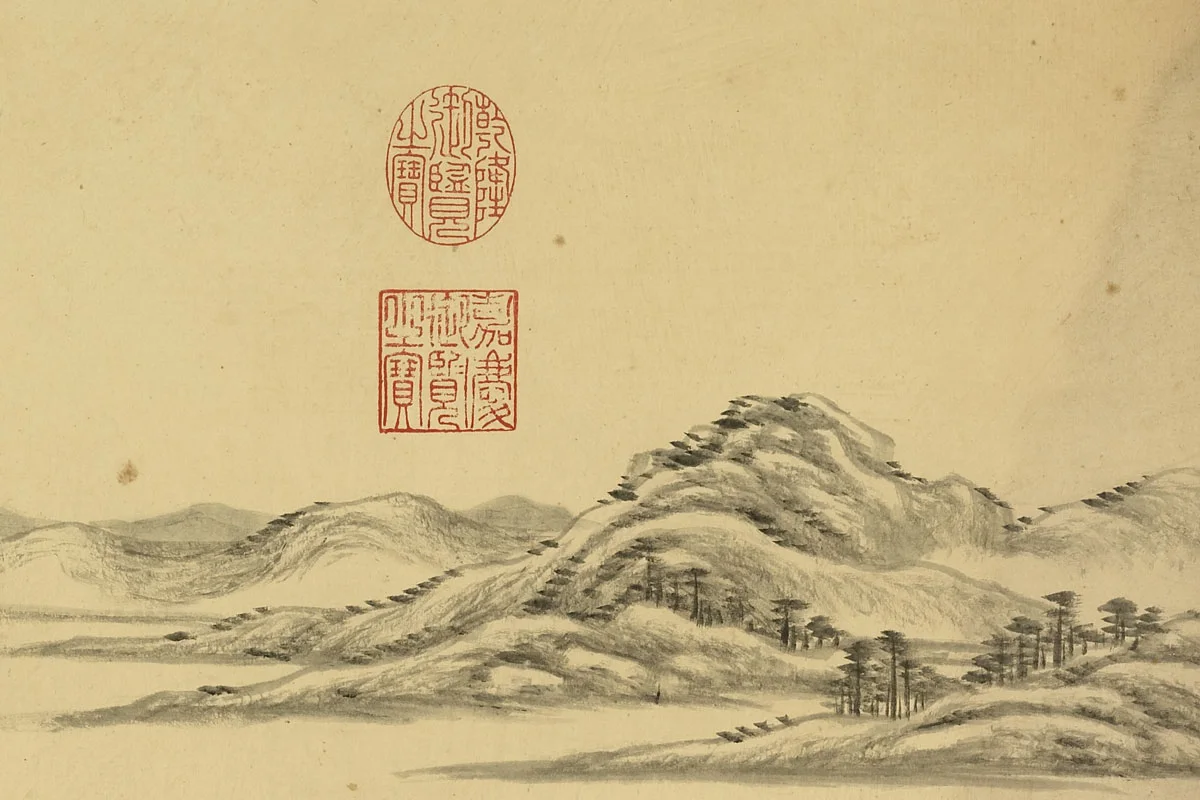 乾隆
御覽
之寶
嘉慶
御覽
之寶